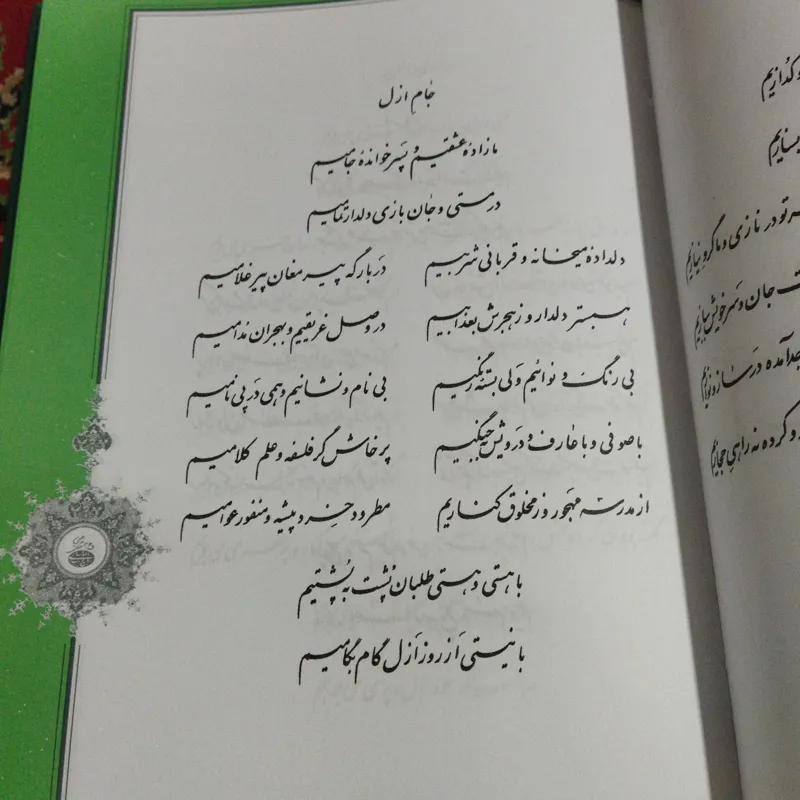 جامِ ازل
ما زادهٔ عشقیم و پسر خواندهٔ جامیم
در مستی و جان بازی دلدار تمامیم
دلدادهٔ میخانه و قربانی شربیم
در بارگه پیر مغان پیر غلامیم
همبستر دلدار و ز هجرش بعذابیم
در وصل غریقیم و بهجران مدامیم
بی رنگ و نوائیم ولی بستهٔ رنگیم
بی نام و نشانیم و همی در پی نامیم
با صوفی و با عارف و درویش بجنگیم
پرخاش گر فلسفه و علم کلامیم
از مدرسه مهجور و ز مخلوق کناریم
مطرود خرد پیشه و منفور عوامیم
با هستی و هستی طلبان پُشت به پُشتیم
با نیستی اَز روز اَزل گام بگامیم
و گدازیم
تو در نازی و ما گرو نیازیم
جان و سَر خویش ببازیم